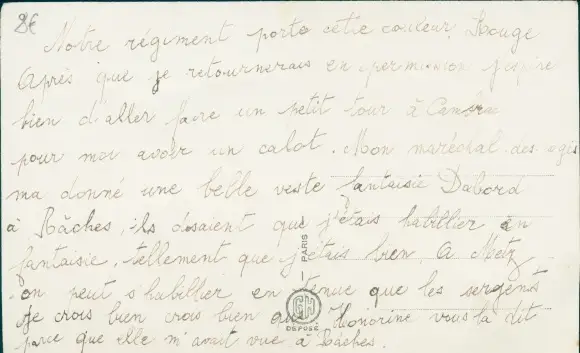 8€
Notre régiment porte cette couleur Rouge
Après que je retournerais en permission j'espire
bien d'aller faire un petit tour à
pour moi avoir un calot. Mon maréchal-des-ogis
ma donné une belle veste fantaisie Dabord
à Bâches, ils disaient que j'étais habillier en
fantaisie, tellement que j'étais bien, A Metz
on peut s'habillier en tenue que les sergents
Je crois bien crois bien que Honorine vous la dit
parce que elle m'avait vue à Bâches.
PARIS
CH
DEPOSÉ